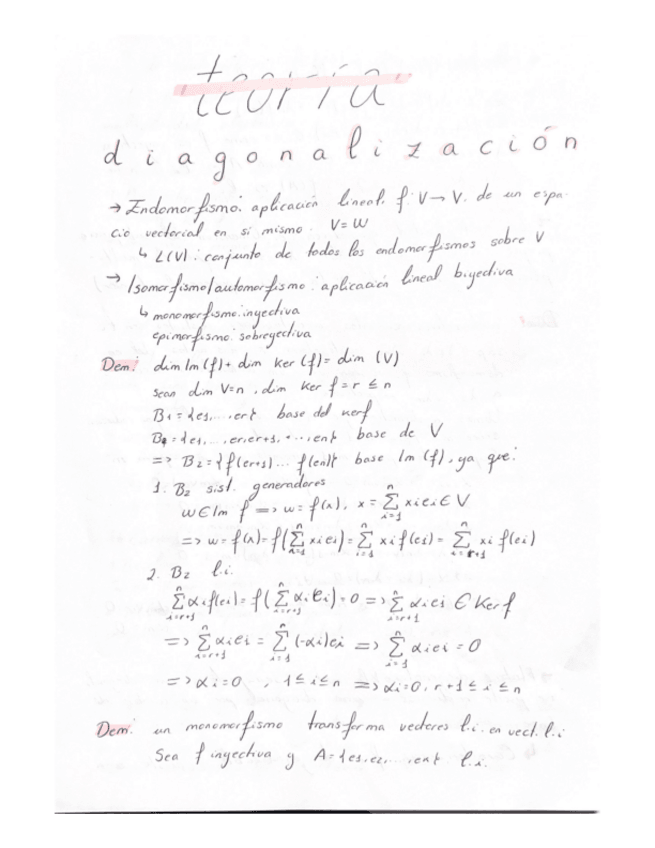 teoría
diagonalización
→ Endomorfismo: aplicación lineal f: V → V. de un espa-
cio vectorial en sí mismo. V=W
↳ L(V): conjunto de todos los endomorfismos sobre V
→ Isomorfismo/automorfismo: aplicación lineal biyectiva
↳ monomorfismo: inyectiva
epimorfismo: sobreyectiva
Dem: dim Im (f) + dim Ker (f) = dim (V)
sean dim V=n, dim Ker f = r ≤ n
B1 = {e1, ..., er} base del Kerf
B = {e1, ..., er, er+1, ..., en} base de V
=> B2 = {f(er+1) ... f(en)} base Im (f), ya que:
1. B2 sist. generadores
w ∈ Im f => w = f(x), x = ∑_{i=1}^{n} xiei ∈ V
=> w = f(x) = f(∑_{i=1}^{n} xiei) = ∑_{i=1}^{n} xi f(ei) = ∑_{i=r+1}^{n} xi f(ei)
2. B2 l.i.
∑_{i=r+1}^{n} αi f(ei) = f(∑_{i=r+1}^{n} αi ei) = 0 => ∑_{i=r+1}^{n} αiei ∈ Ker f
=> ∑_{i=r+1}^{n} αiei = ∑_{i=1}^{n} (-αi)ei => ∑_{i=1}^{n} αiei = 0
=> αi = 0, 1 ≤ i ≤ n => αi = 0, r+1 ≤ i ≤ n
Dem: un monomorfismo transforma vectores l.i. en vect. l.i
Sea f inyectiva y A = {e1, e2, ..., en} l.i.